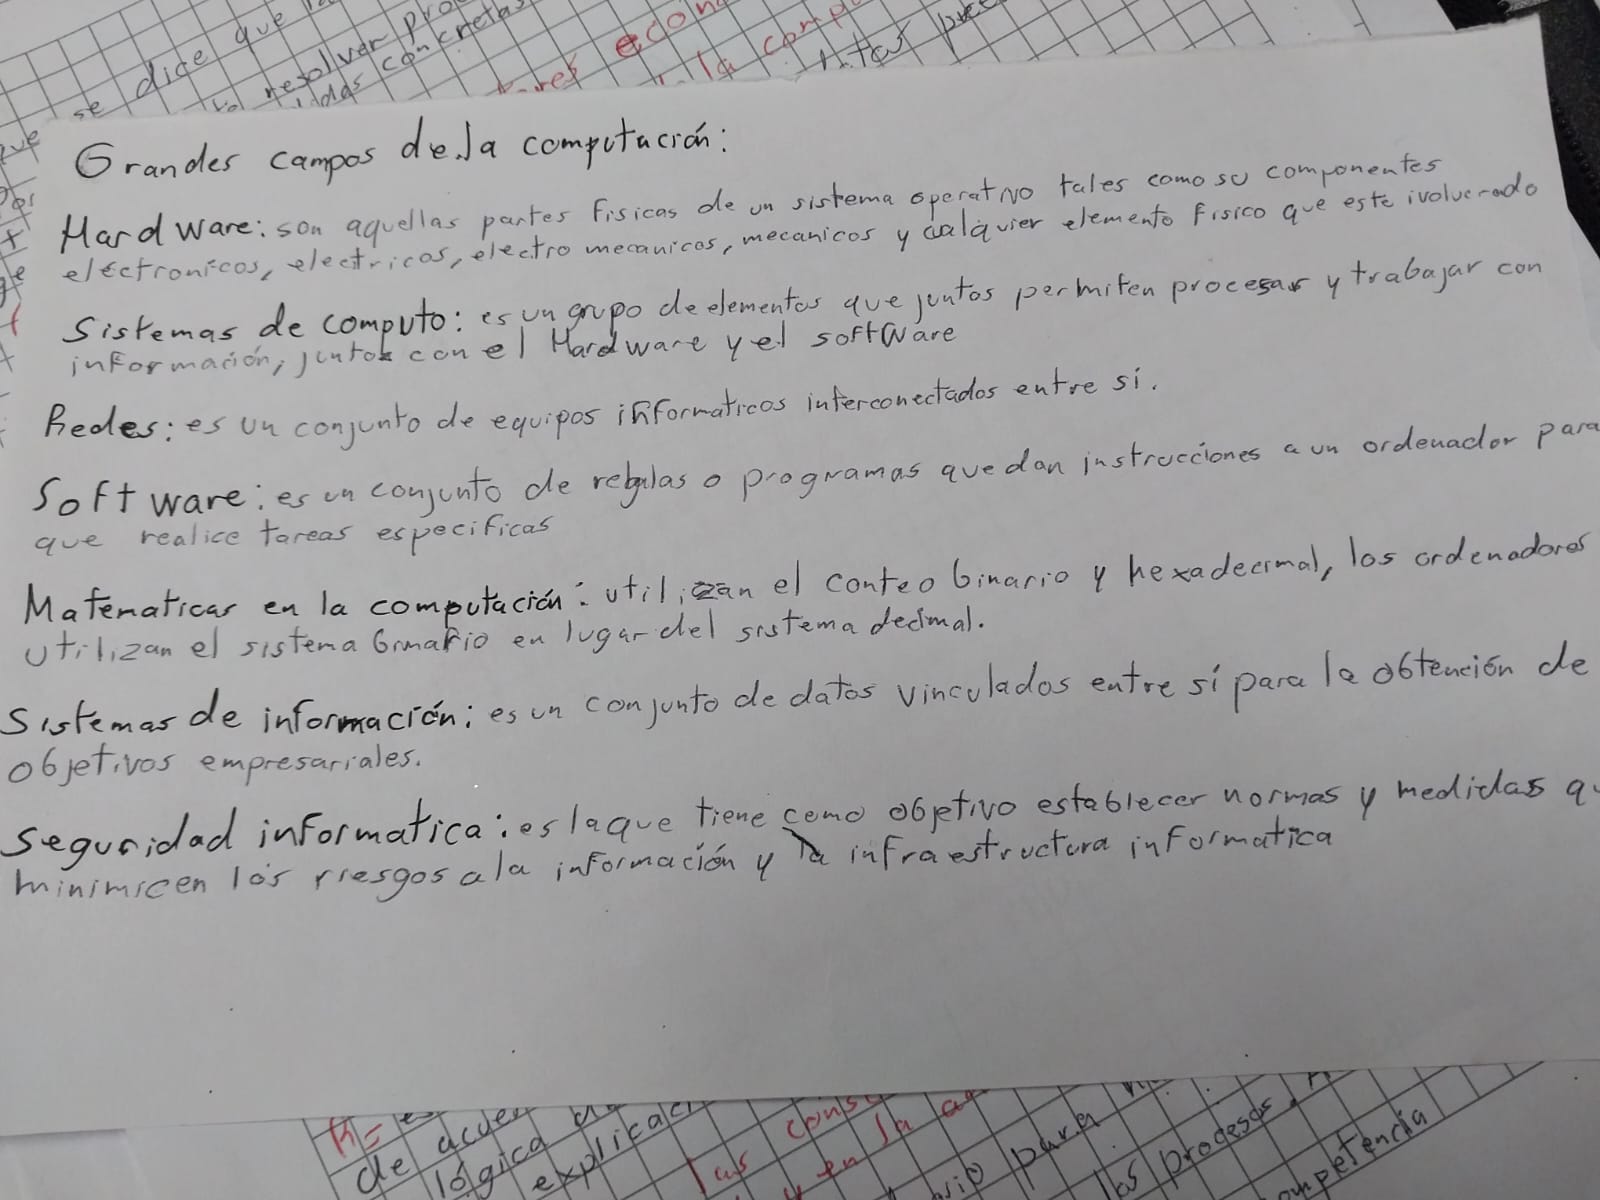 se dice que
resolver
concretas
Grandes campos de la computación:
Hardware: son aquellas partes fisicas de un sistema operativo tales como su componentes
eléctronicos, electricos, electro mecanicos, mecanicos y cualquier elemento fisico que este ivolucrado
Sistemas de computo: es un grupo de elementos que juntos permiten procesar y trabajar con
información, juntos con el Hardware y el software
Redes: es un conjunto de equipos informaticos interconectados entre sí.
Software: es un conjunto de reglas o programas que dan instrucciones a un ordenador para
que realice tareas especificas
Matematicas en la computación: utilizan el conteo binario y hexadecimal, los ordenadores
utilizan el sistema binario en lugar del sistema decimal.
Sistemas de información: es un conjunto de datos vinculados entre sí para la obtención de
objetivos empresariales.
Seguridad informatica: es la que tiene como objetivo establecer normas y medidas q
minimicen los riesgos a la información y la infraestructura informatica
R=
de
lógica
las
en la
para
los procesos.